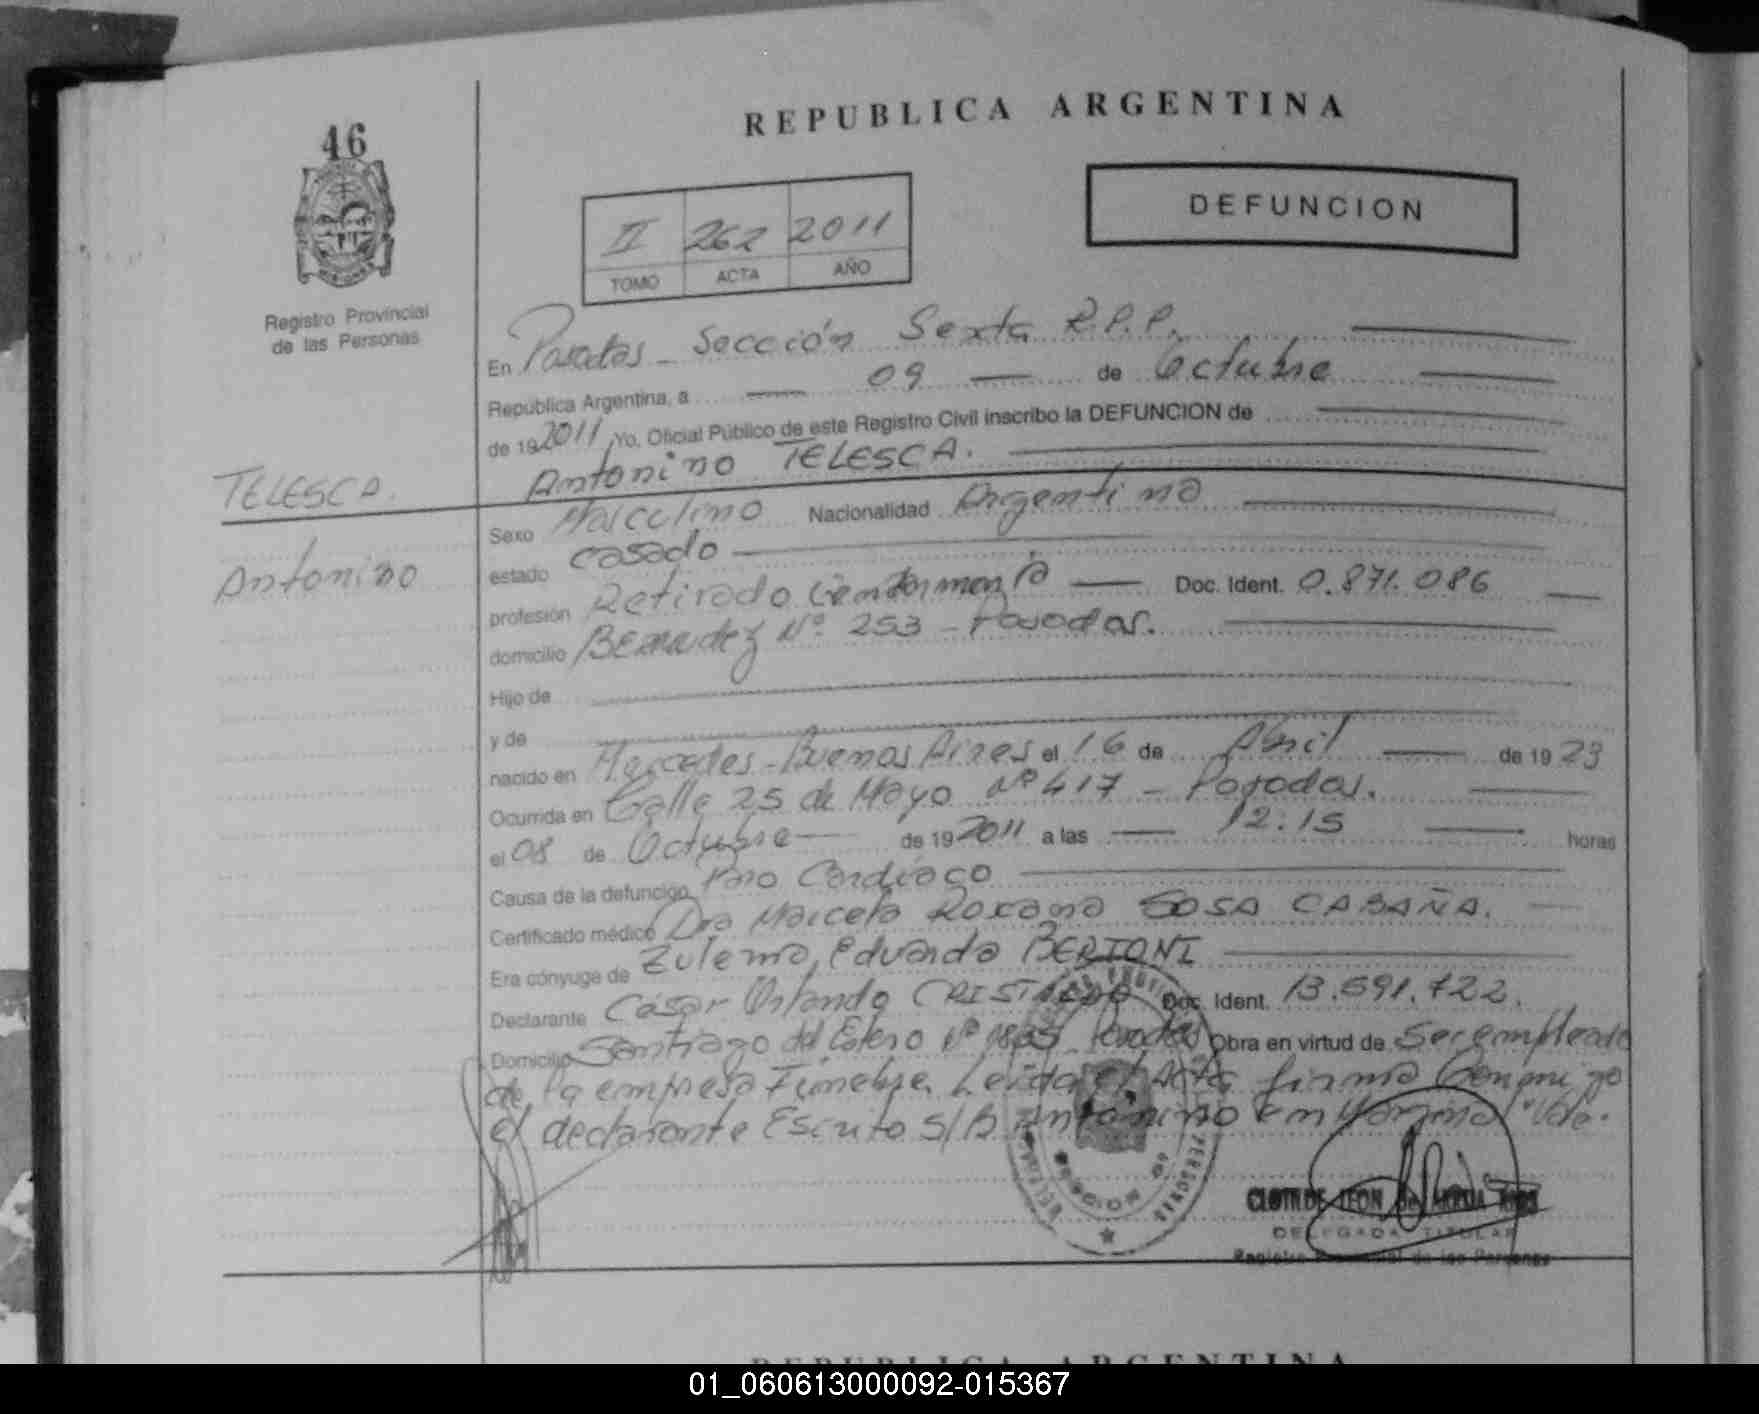 46
REPUBLICA ARGENTINA
DEFUNCION
II 262 2011
TOMO ACTA AÑO
Registro Provincial
de las Personas
En Posadas - Sección Sexta R.P.P.
República Argentina, a 09 de Octubre
de 19 2011 Yo, Oficial Público de este Registro Civil inscribo la DEFUNCION de
Antonino TELESCA.
TELESCA.
Antonino
Sexo Masculino Nacionalidad Argentina
estado casado
profesión Retirado Gendarmería Doc. Ident. 0.871.086
domicilio Bermudez Nº 253 - Posadas.
Hijo de
y de
nacido en Mercedes - Buenos Aires el 16 de Abril de 19 23
Ocurrida en Calle 25 de Mayo Nº 417 - Posadas.
el 08 de Octubre de 19 2011 a las 12:15 horas
Causa de la defunción Paro Cardíaco
Certificado médico Dra Marcela Roxana SOSA CABAÑA.
Era cónyuge de Zulema Eduarda BERTONI
Declarante César Orlando CRISTALDO Doc. Ident. 13.591.722.
Domicilio Santiago del Estero Nº Posadas Obra en virtud de Ser empleado
de la empresa Fúnebre. Leida el Acta firma Conmigo
el declarante Escrito S/B Antonino en Margina Vale.
CLOTILDE LEON de
DELEGADA TITULAR
Registro Provincial de las Personas
REPUBLICA ARGENTINA
01_060613000092-015367